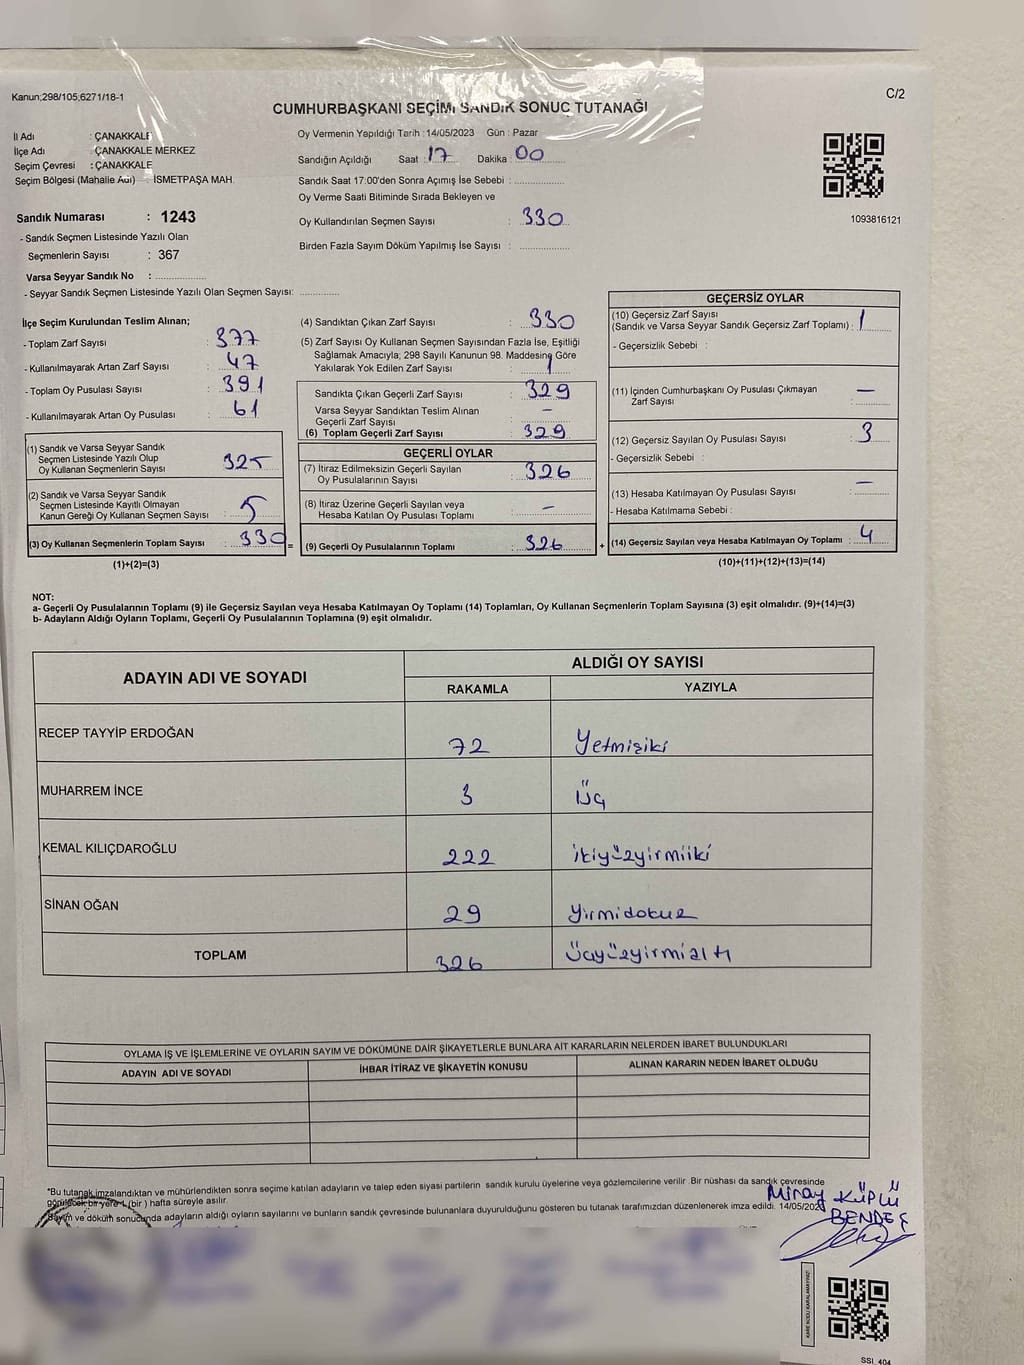 Kanun;298/105;6271/18-1
C/2
CUMHURBAŞKANI SEÇİMİ SANDIK SONUÇ TUTANAĞI
İl Adı : ÇANAKKALE
İlçe Adı : ÇANAKKALE MERKEZ
Seçim Çevresi : ÇANAKKALE
Seçim Bölgesi (Mahalle Adı) : İSMETPAŞA MAH.
Oy Vermenin Yapıldığı Tarih : 14/05/2023 Gün : Pazar
Sandığın Açıldığı Saat : 17 Dakika : 00
Sandık Saat 17:00'den Sonra Açımış İse Sebebi :
Oy Verme Saati Bitiminde Sırada Bekleyen ve
Oy Kullandırılan Seçmen Sayısı : 330
Birden Fazla Sayım Döküm Yapılmış İse Sayısı :
1093816121
Sandık Numarası : 1243
- Sandık Seçmen Listesinde Yazılı Olan
Seçmenlerin Sayısı : 367
Varsa Seyyar Sandık No :
- Seyyar Sandık Seçmen Listesinde Yazılı Olan Seçmen Sayısı:
İlçe Seçim Kurulundan Teslim Alınan;
- Toplam Zarf Sayısı : 377
- Kullanılmayarak Artan Zarf Sayısı : 47
- Toplam Oy Pusulası Sayısı : 391
- Kullanılmayarak Artan Oy Pusulası : 61
(1) Sandık ve Varsa Seyyar Sandık
Seçmen Listesinde Yazılı Olup
Oy Kullanan Seçmenlerin Sayısı : 325
(2) Sandık ve Varsa Seyyar Sandık
Seçmen Listesinde Kayıtlı Olmayan
Kanun Gereği Oy Kullanan Seçmen Sayısı : 5
(3) Oy Kullanan Seçmenlerin Toplam Sayısı : 330 =
(1)+(2)=(3)
(4) Sandıktan Çıkan Zarf Sayısı : 330
(5) Zarf Sayısı Oy Kullanan Seçmen Sayısından Fazla İse, Eşitliği
Sağlamak Amacıyla; 298 Sayılı Kanunun 98. Maddesine Göre
Yakılarak Yok Edilen Zarf Sayısı : 1
Sandıkta Çıkan Geçerli Zarf Sayısı : 329
Varsa Seyyar Sandıktan Teslim Alınan
Geçerli Zarf Sayısı : –
(6) Toplam Geçerli Zarf Sayısı : 329
GEÇERLİ OYLAR
(7) İtiraz Edilmeksizin Geçerli Sayılan
Oy Pusulalarının Sayısı : 326
(8) İtiraz Üzerine Geçerli Sayılan veya
Hesaba Katılan Oy Pusulası Toplamı : –
(9) Geçerli Oy Pusulalarının Toplamı : 326 +
GEÇERSİZ OYLAR
(10) Geçersiz Zarf Sayısı
(Sandık ve Varsa Seyyar Sandık Geçersiz Zarf Toplamı) : 1
- Geçersizlik Sebebi :
(11) İçinden Cumhurbaşkanı Oy Pusulası Çıkmayan
Zarf Sayısı : –
(12) Geçersiz Sayılan Oy Pusulası Sayısı : 3
- Geçersizlik Sebebi :
(13) Hesaba Katılmayan Oy Pusulası Sayısı : –
- Hesaba Katılmama Sebebi :
(14) Geçersiz Sayılan veya Hesaba Katılmayan Oy Toplamı : 4
(10)+(11)+(12)+(13)=(14)
NOT:
a- Geçerli Oy Pusulalarının Toplamı (9) ile Geçersiz Sayılan veya Hesaba Katılmayan Oy Toplamı (14) Toplamları, Oy Kullanan Seçmenlerin Toplam Sayısına (3) eşit olmalıdır. (9)+(14)=(3)
b- Adayların Aldığı Oyların Toplamı, Geçerli Oy Pusulalarının Toplamına (9) eşit olmalıdır.
ADAYIN ADI VE SOYADI
ALDIĞI OY SAYISI
RAKAMLA YAZIYLA
RECEP TAYYİP ERDOĞAN 72 Yetmişiki
MUHARREM İNCE 3 Üç
KEMAL KILIÇDAROĞLU 222 ikiyüzyirmiiki
SİNAN OĞAN 29 Yirmidokuz
TOPLAM 326 Üçyüzyirmialtı
OYLAMA İŞ VE İŞLEMLERİNE VE OYLARIN SAYIM VE DÖKÜMÜNE DAİR ŞİKAYETLERLE BUNLARA AİT KARARLARIN NELERDEN İBARET BULUNDUKLARI
ADAYIN ADI VE SOYADI İHBAR İTİRAZ VE ŞİKAYETİN KONUSU ALINAN KARARIN NEDEN İBARET OLDUĞU
*Bu tutanak imzalandıktan ve mühürlendikten sonra seçime katılan adayların ve talep eden siyasi partilerin sandık kurulu üyelerine veya gözlemcilerine verilir .Bir nüshası da sandık çevresinde
görülecek bir yere 1 (bir ) hafta süreyle asılır.
Sayım ve döküm sonucunda adayların aldığı oyların sayılarını ve bunların sandık çevresinde bulunanlara duyurulduğunu gösteren bu tutanak tarafımızdan düzenlenerek imza edildi. 14/05/2023
Miray KÜPLÜ
BENDEŞ
KARE KODU KARALAMAYINIZ!
SSI 404